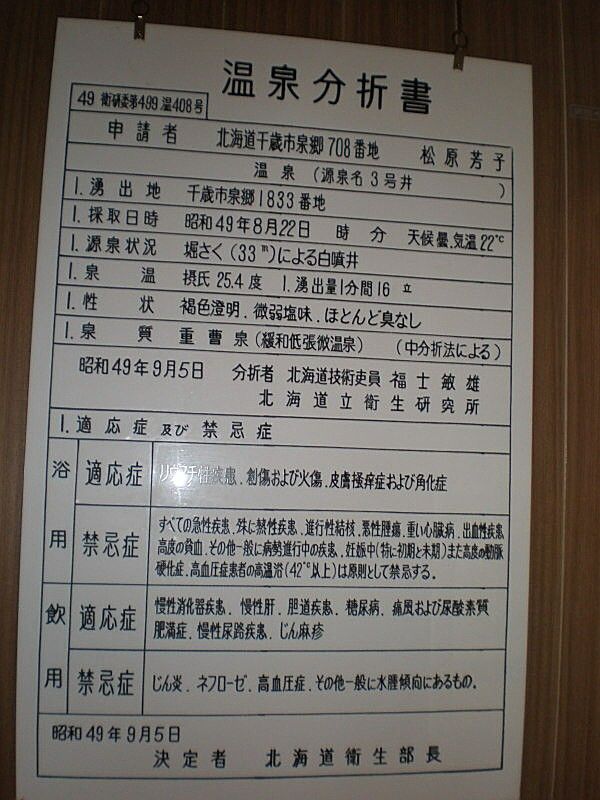 温泉分折書
49 衛研委第499 温408号
申請者 北海道千歳市泉郷708番地 松原芳子
温泉 (源泉名 3号井 )
1. 湧出地 千歳市泉郷1833番地
1. 採取日時 昭和49年8月22日 時 分 天候 曇. 気温 22℃
1. 源泉状況 堀さく (33m) による自噴井
1. 泉温 摂氏 25.4 度 1. 湧出量1分間16 立
1. 性状 褐色澄明. 微弱塩味. ほとんど臭なし
1. 泉質 重曹泉 (緩和低張微温泉) (中分折法による)
昭和49年9月5日 分折者 北海道技術吏員 福士敏雄
北海道立衛生研究所
1. 適応症 及び 禁忌症
浴用
適応症
リウマチ性疾患. 創傷および火傷. 皮膚掻痒症および角化症
禁忌症
すべての急性疾患. 殊に熱性疾患. 進行性結核. 悪性腫瘍. 重い心臓病. 出血性疾患
高度の貧血. その他一般に病勢進行中の疾患. 妊娠中(特に初期と末期)また高度の動脈
硬化症. 高血圧症患者の高温浴(42℃以上)は原則として禁忌する.
飲用
適応症
慢性消化器疾患. 慢性肝. 胆道疾患. 糖尿病. 痛風および尿酸素質
肥満症. 慢性尿路疾患. じん麻疹
禁忌症
じん炎. ネフローゼ. 高血圧症. その他一般に水腫傾向にあるもの.
昭和49年9月5日
決定者 北海道衛生部長